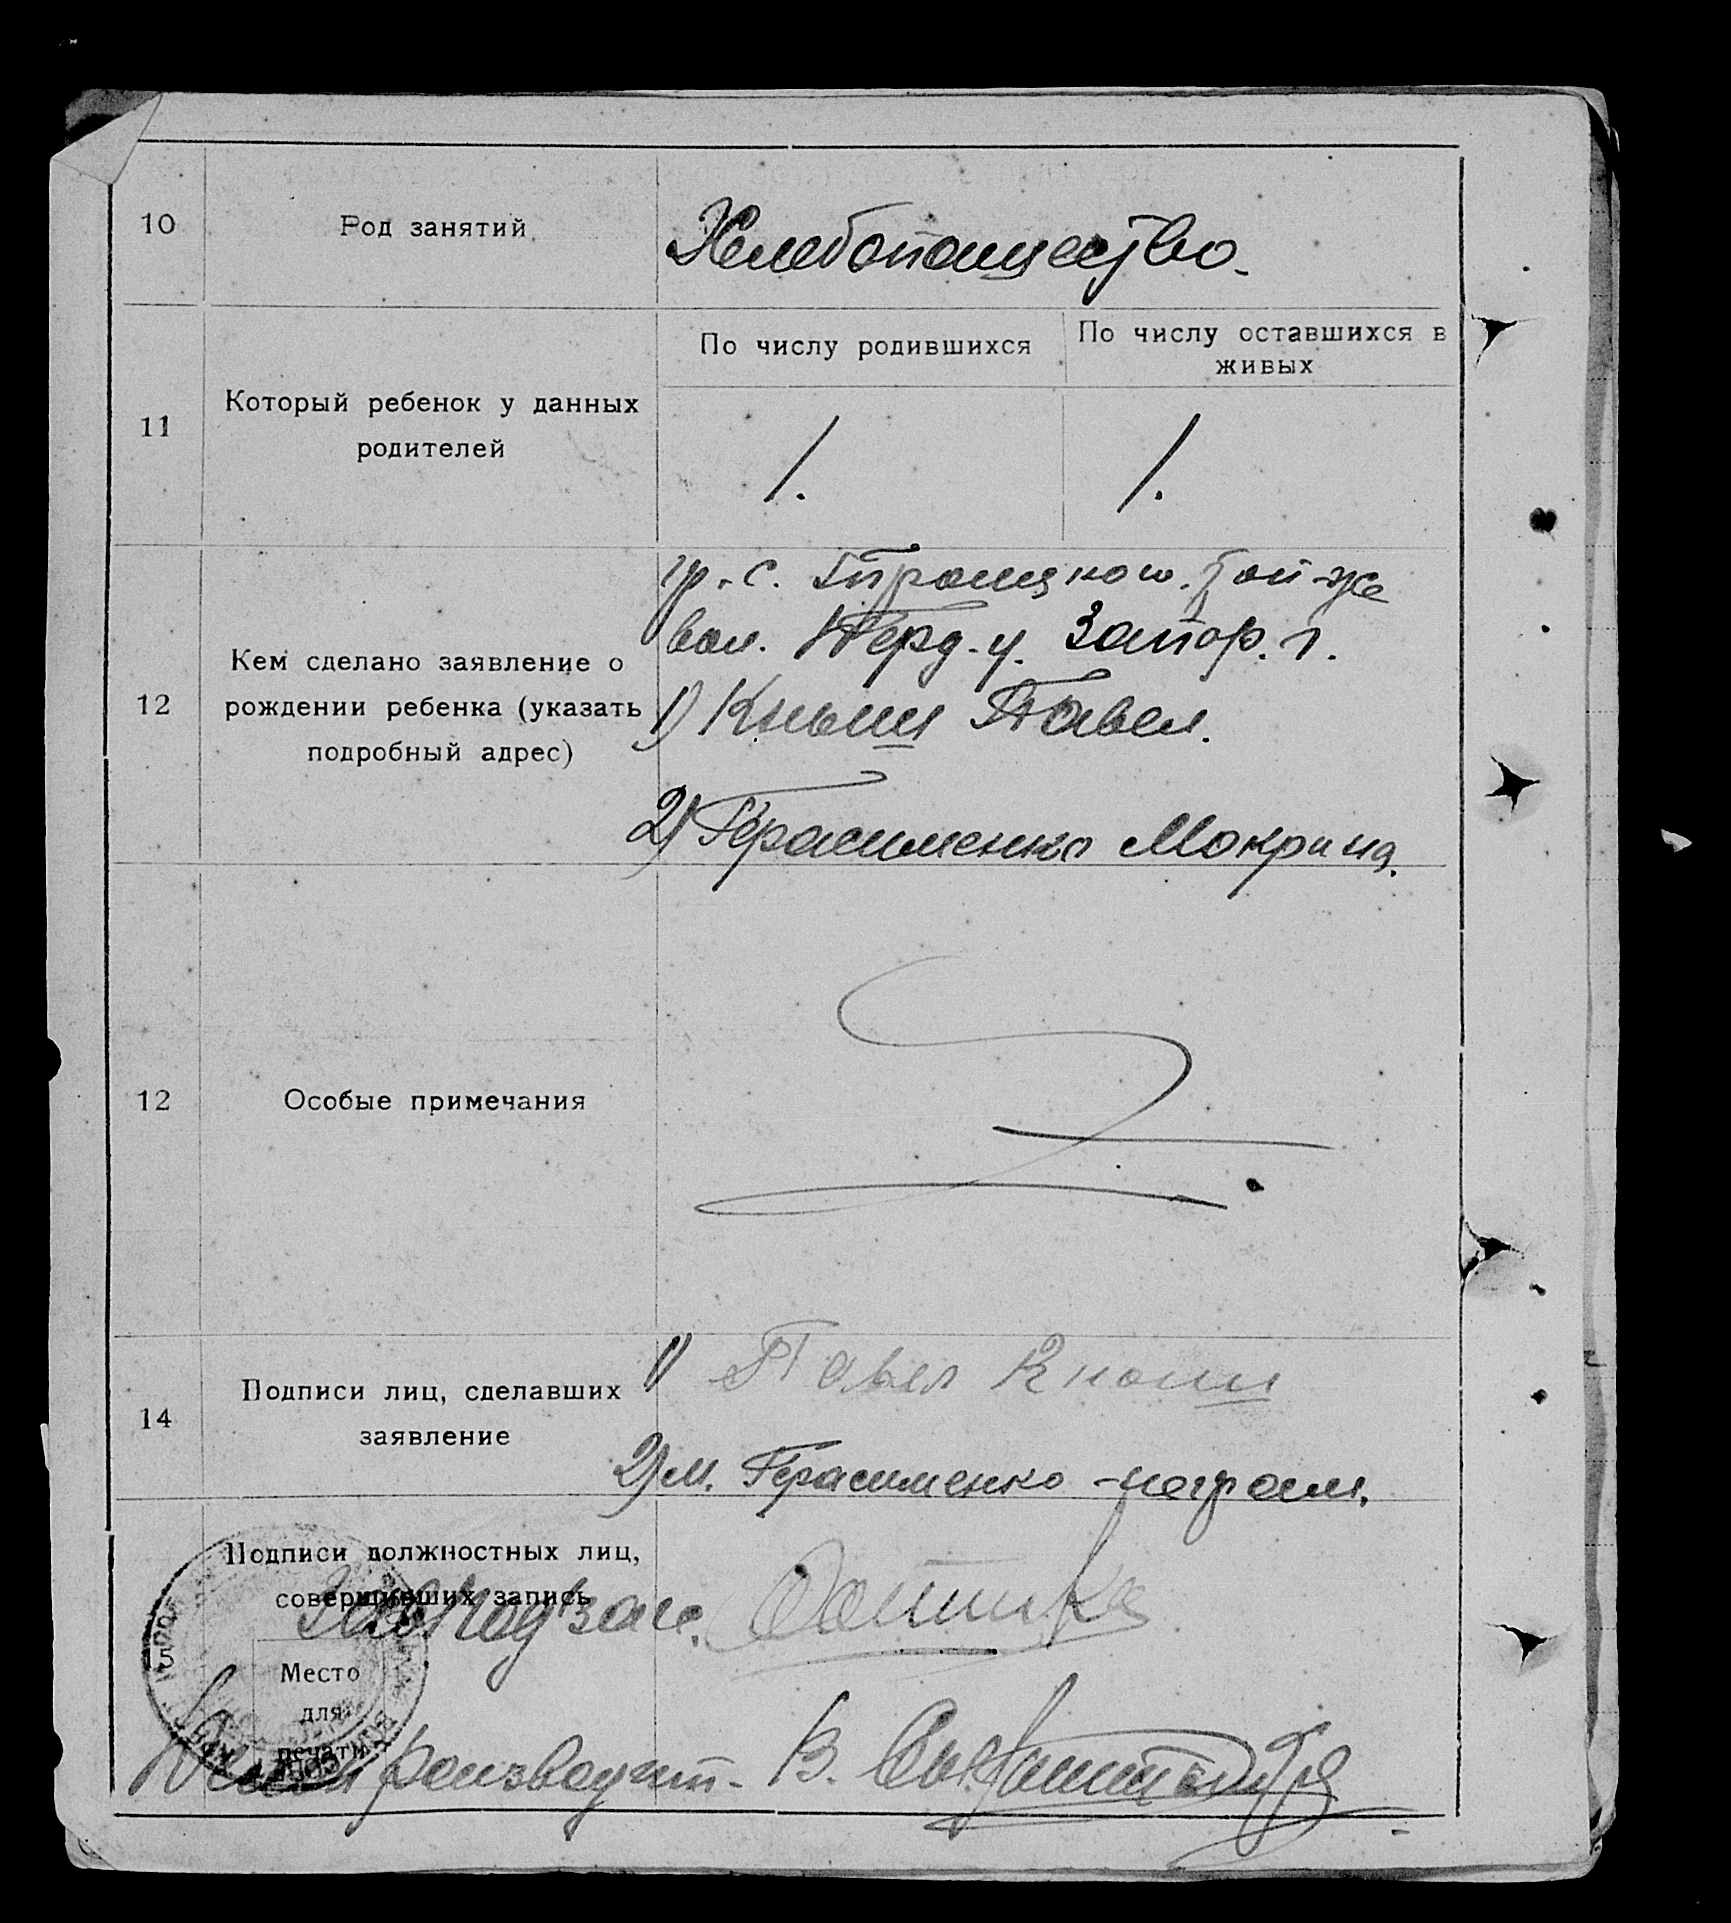 10
Род занятий
Хлебопашество.
11
Который ребенок у данных
родителей
По числу родившихся
По числу оставшихся в
живых
1.
1.
12
Кем сделано заявление о
рождении ребенка (указать
подробный адрес)
гр. с. Троицкого. той-же
вол. Берд. у. Запор. г.
1) Кныш Павел.
2) Герасименко Мокрина.
12
Особые примечания
14
Подписи лиц, сделавших
заявление
1) Павел Кныш
2) М. Герасименко -неграм.
15
Подписи должностных лиц,
совершивших запись
Завподзаг.
Место
для
печати
Делопроизводит. В.